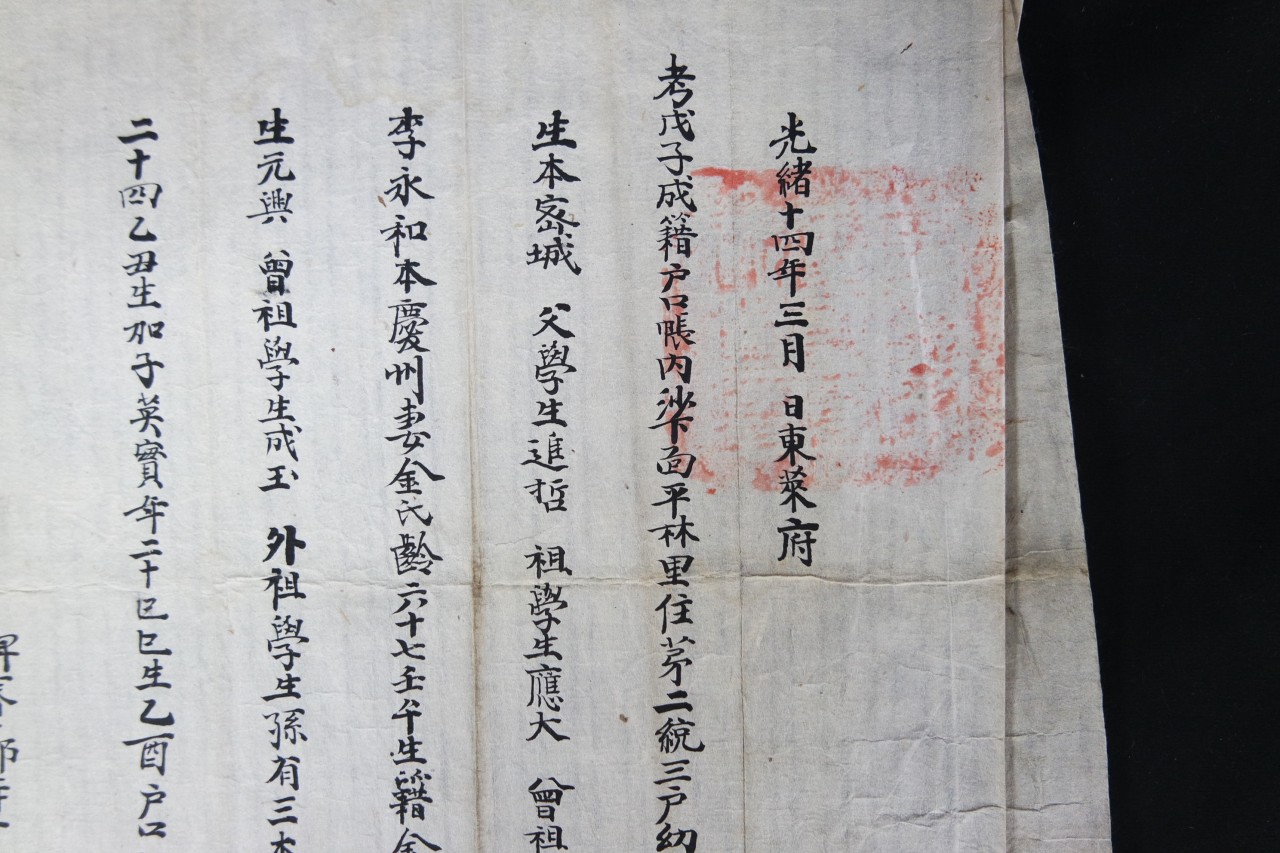 光緒十四年三月 日東萊府
考戊子成籍户口帳内沙下面平林里住苐二統三户幼
生本密城 父學生進哲 祖學生應大 曾祖
李永和本慶州妻金氏齡六十七壬午生籍金
生元興 曾祖學生成玉 外祖學生孫有三本
二十四乙丑生加子英實年二十巳巳生乙酉户口